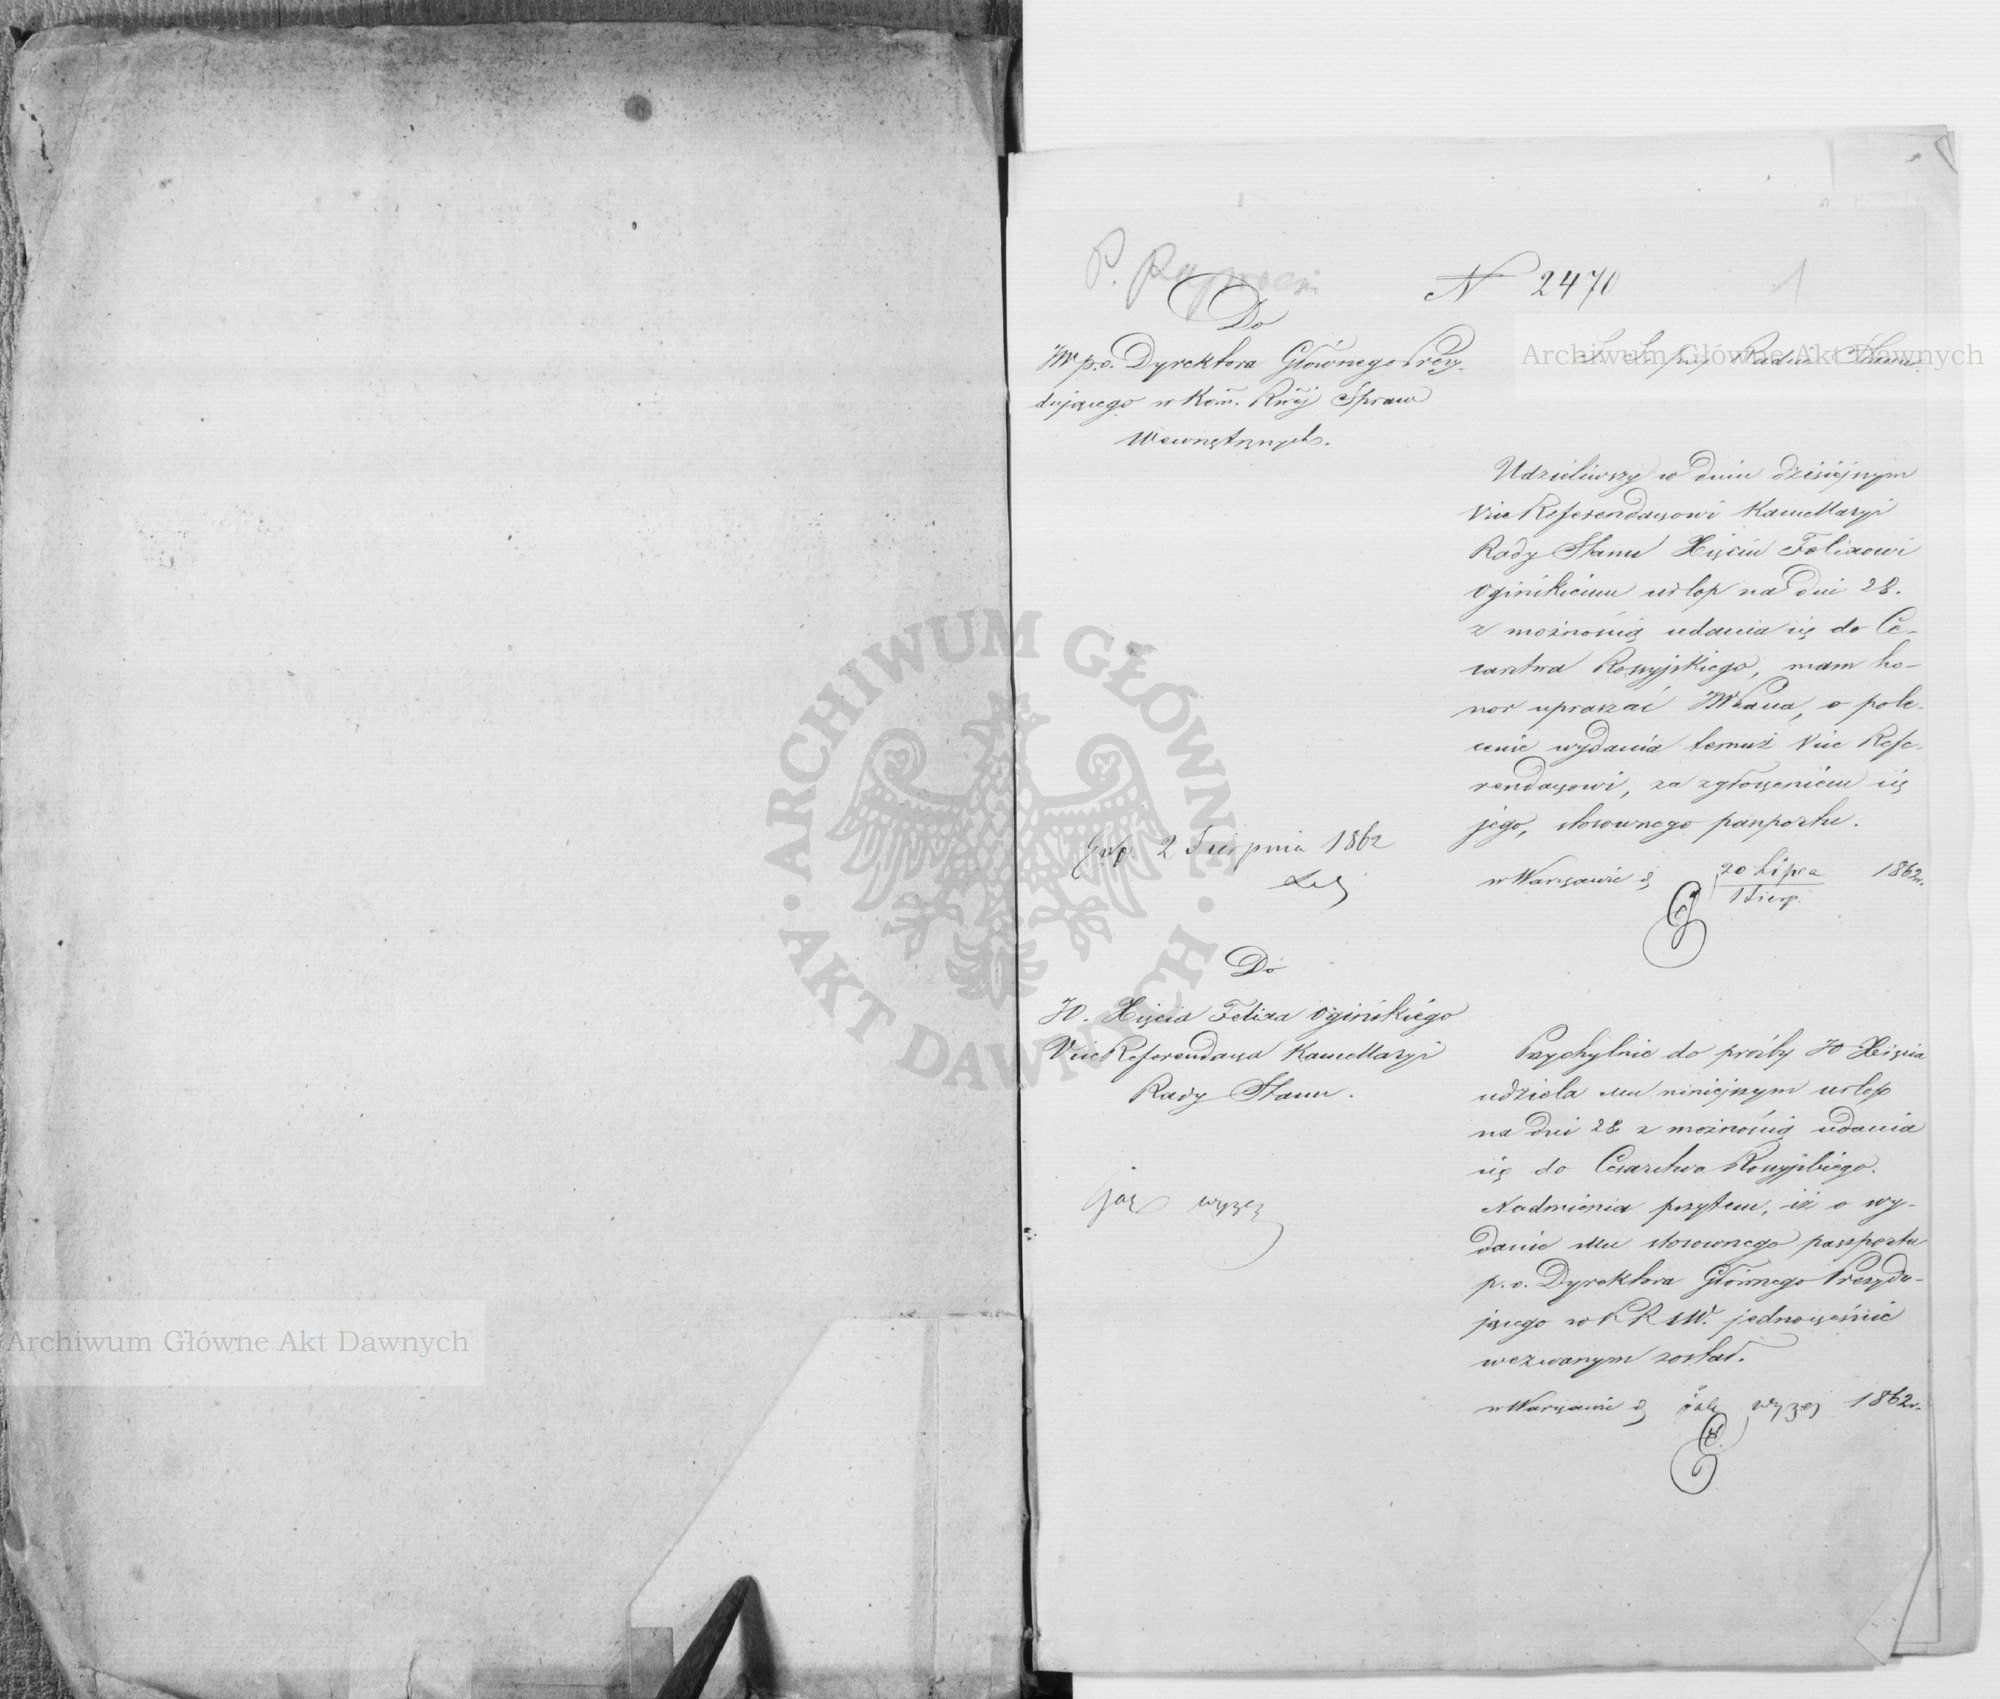 N 2470
1
Do
JW p.o. Dyrektora Głównego Prezy-
dującego w Kom. Rząd. Spraw
Wewnętrznych.
Udzieliwszy w dniu dzisiejszym
Vice Referendarzowi Kancellaryi
Rady Stanu Xięciu Felixowi
Ogińskiemu urlop na dni 28.
z możnością udania się do Ce-
sarstwa Rossyjskiego, mam ho-
nor upraszać JW Pana, o pole-
cenie wydania temuż Vice Refe-
rendarzowi, za zgłoszeniem się
jego, stosownego paszportu.
w Warszawie d. 20 Lipca / 1 Sierp. 1862 r.
2 Sierpnia 1862
Do
JO. Xięcia Felixa Ogińskiego
Vice Referendarza Kancellaryi
Rady Stanu.
Przychylnie do prośby JO Xięcia
udziela mu niniejszym urlop
na dni 28 z możnością udania
się do Cesarstwa Rossyjskiego.
Nadmienia przytem, iż o wy-
danie mu stosownego paszportu
p.o. Dyrektora Głównego Prezydu-
jącego w K R S W. jednocześnie
wezwanym został.
w Warszawie d. jak wyżej 1862 r.
jak wyżej
Archiwum Główne Akt Dawnych
Archiwum Główne Akt Dawnych
ARCHIWUM GŁÓWNE · AKT DAWNYCH ·